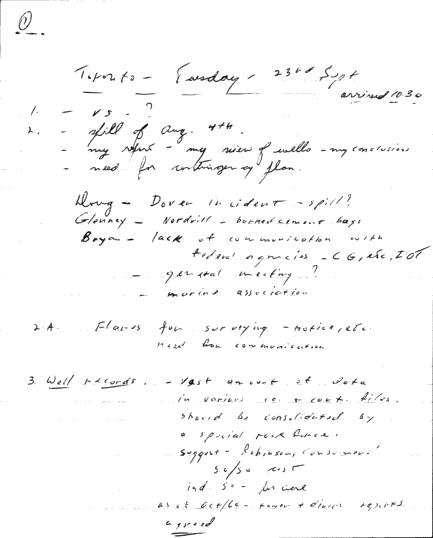 ①
Toronto - Tuesday - 23rd Sept
arrived 10:30
1. - vs - ?
2. - spill of Aug. 4th.
- my - my view of wells - my conclusions
- need for contingency plan.
Doug - Dover Incident - spill?
- Nordrill - burned cement bags
Bryan - lack of communication with
federal agencies - CG, etc,
- general meeting ?
- marine association
2.A. Flares for surveying - notice, etc.
need for communication
3. Well records. - vast amount of data
in various co. + files.
should be consolidated by
a special task force.
suggest - Consumers'
50/50 cost
ind. 50 -
as of - tower + diver reports.
agreed